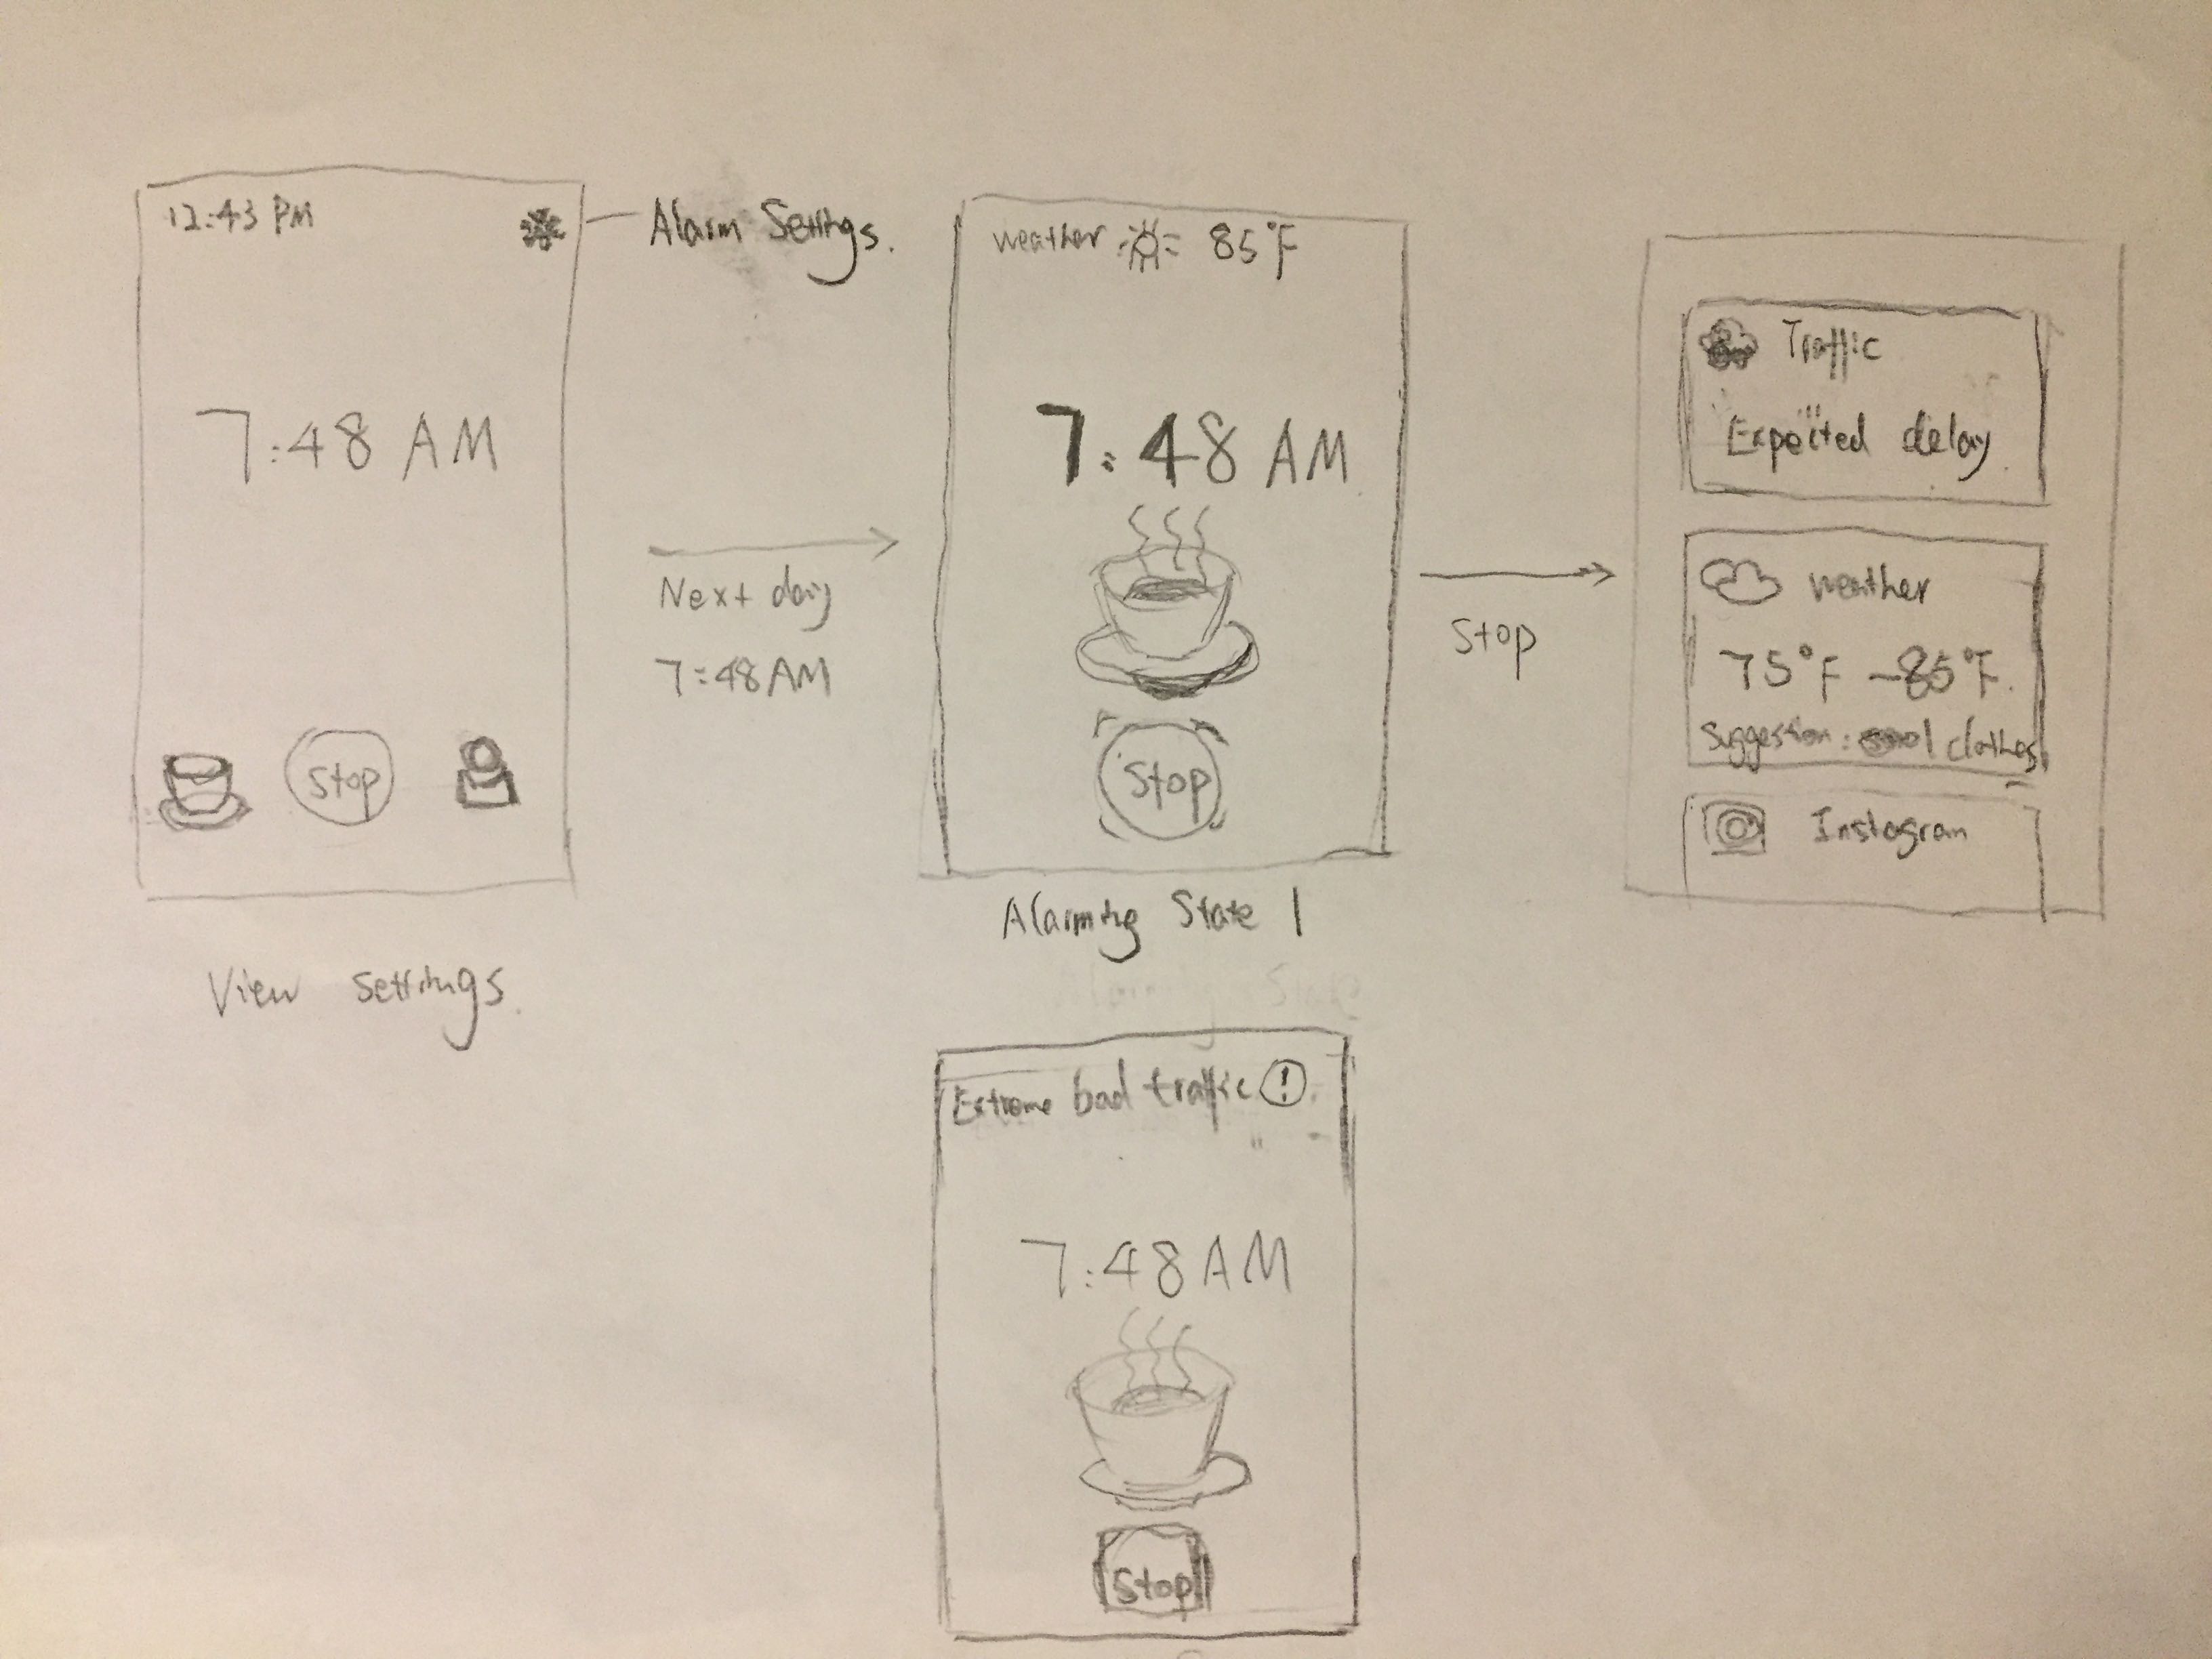 12:43 PM
Alarm Settings.
7:48 AM
Stop
View Settings.
Next day
7:48 AM
weather 85°F
7:48 AM
Stop
Alarming State 1
Stop
Traffic
Expected delay.
weather
75°F - 85°F.
Suggestion: cool clothes
Instagram
Extreme bad traffic !
7:48 AM
Stop